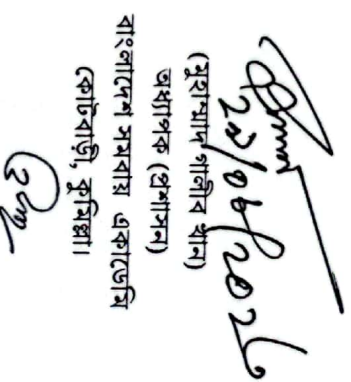 ২৯/০৬/২০২৬
(মুহাম্মাদ গালীব খান)
অধ্যাপক (প্রশাসন)
বাংলাদেশ সমবায় একাডেমি
কোটবাড়ী, কুমিল্লা।